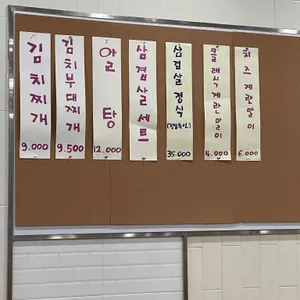 김치찌개
9.000
김치부대찌개
9.500
알탕
12.000
삼겹살세트
삼겹살정식
35.000
클래식계란말이
4.000
치즈계란말이
6.000